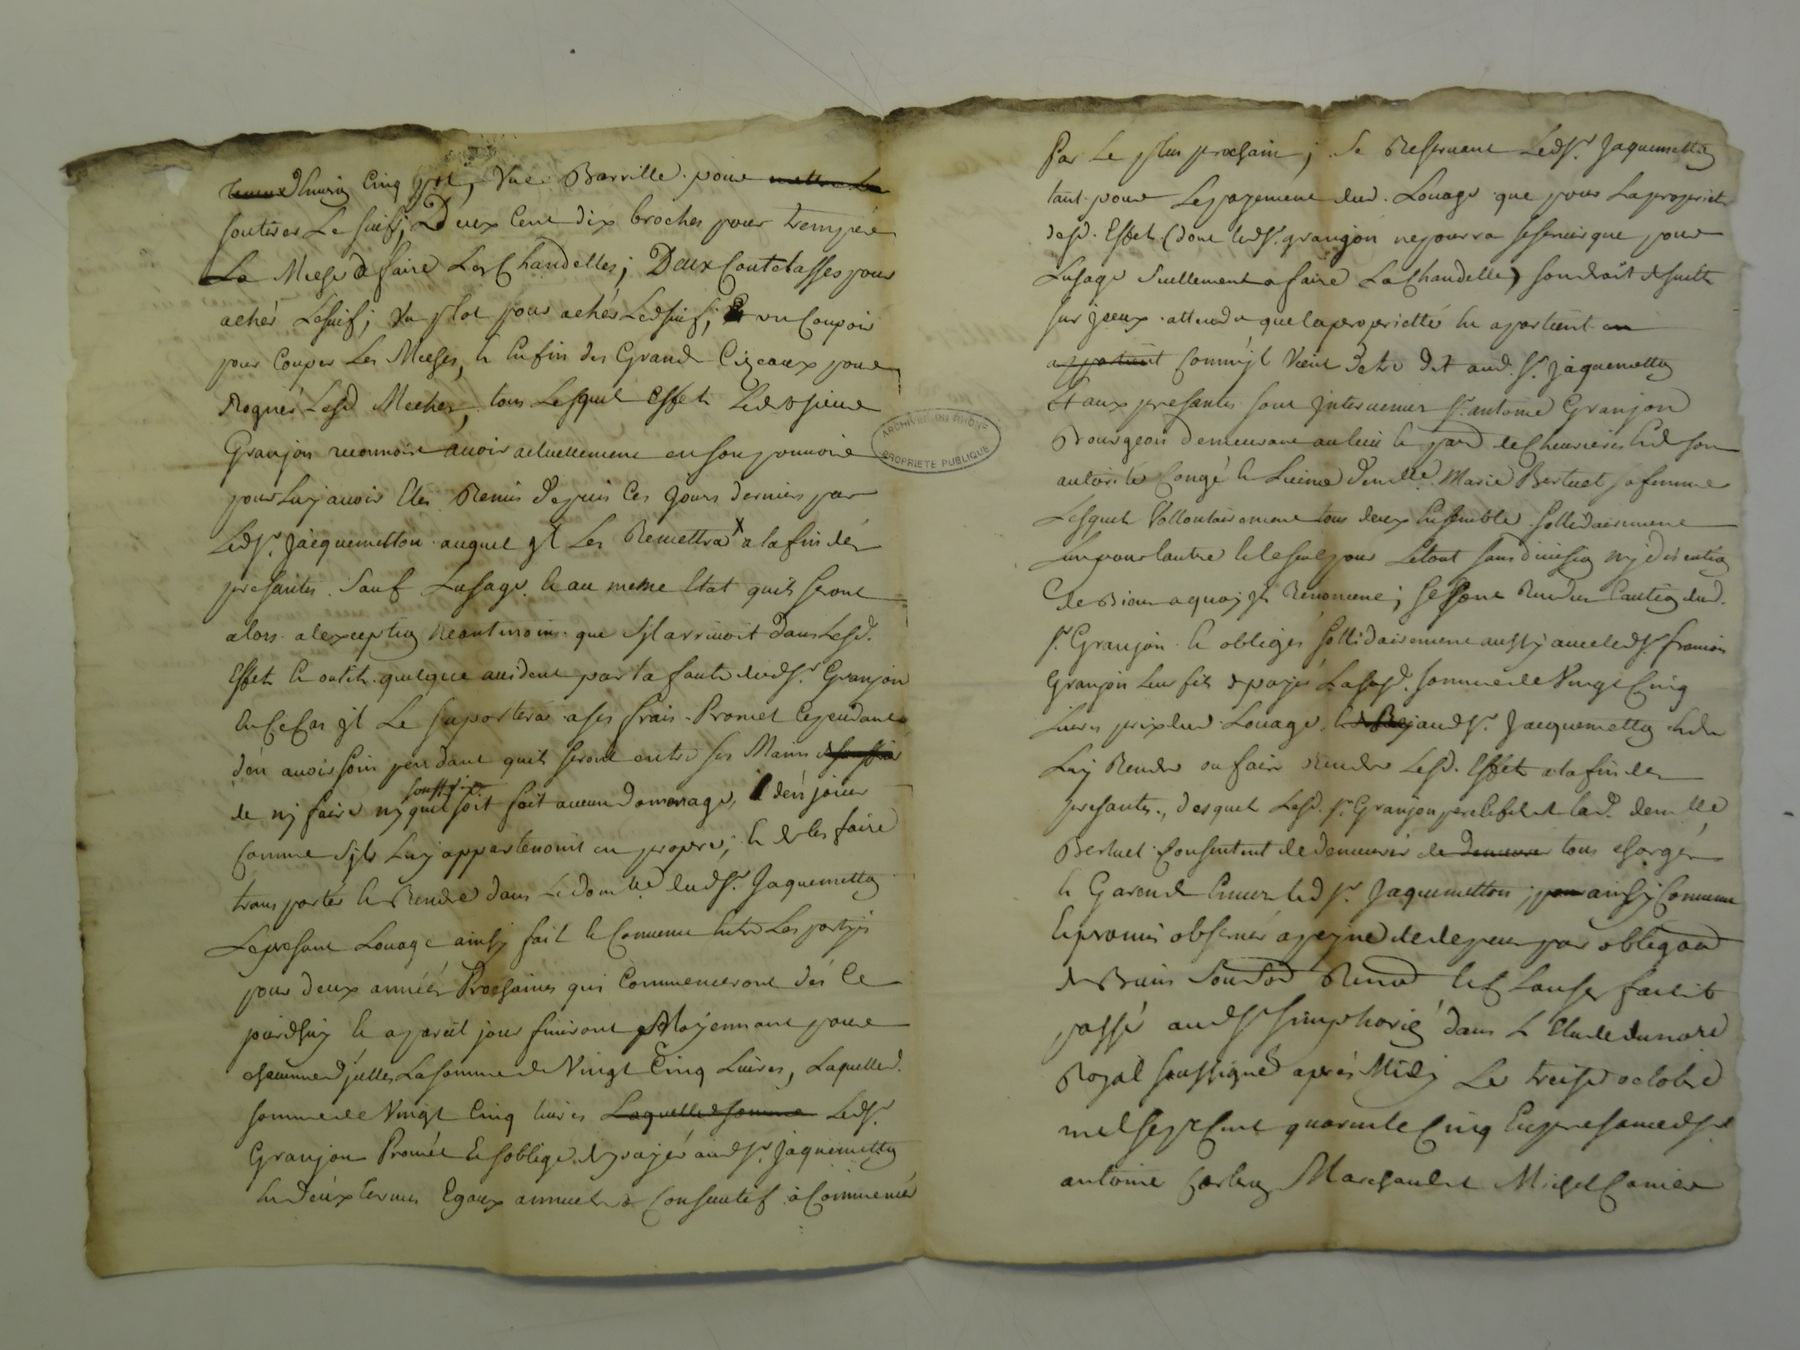 Cinq pot, Une Barrille pour
soutirer Le suif; Deux Cent dix broches pour trempér
La Meche & faire Les Chandelles; Deux Coutelasses pour
achér Lesuif; Un plot pour achér Ledsuif; un Coupoir
pour Couper Les Meches, & Enfin des Grand Cizeaux pour
Rogner Lesd. Meches, tous Lesquel Effet Led. Sieur
Granjon reconnoit avoir actuellement en son pouvoir
pour Luy avoir Eté Remis depuis Ces Jours derniers par
Ledsr. Jacquemetton auquel Jl Les Remettra a la fin dés
presantes. Sauf Lusage & au meme Etat quils seront
alors a lexception neantmoins que sjl arrivoit dans Lesd.
Effet & outils quelque accident par la faute dudsr. Granjon
En Ce Cas Jl Le suportera a ses frais. Promet Cependant
dén avoir soin pendant quils seront entre ses Mains
de ny faire ny souffrir quil soit fait aucun domage, dén jouir
Comme Sjls Luy appartenoint en propre; & de les faire
transporter & Rendre dans Le domlle. dudsr. Jaquemetton
Lepresant Louage ainsy fait & Convenu Entre Les partyes
pour deux années Prochaines qui Commenceront dés Ce
jourdhuy & a pareil jour finiront Moyennant pour
chacune djcelles La somme de Vingt Cinq Livres, Laquelle
somme de Vingt Cinq livres Laquelle somme Ledsr.
Granjon Promet & soblige de payér audsr. Jaquemetton
En deux termes Egaux annuels & Consecutif a Commencér
Par Le plus prochain; Se Reservant Ledsr. Jaquemetton
tant pour Le payement dud. Louage que pour La proprieté
desd. Effets (dont ledsr. granjon ne pourra se servir que pour
Lusage seullement a faire La Chandelle) son droit de suitte
sur Jceux attendu que la proprietté luy apartient
appartient Comme jl Vient detre dit aud. sr. Jaquemetton
Et aux presantes sont Intervenus sr. antoine Granjon
Bourgeois demeurant au lieu & par. de Chevrieres & de son
autorité Congé & Licence Demlle. Marie Bertuel sa femme
Lesquels Vollontairement tous deux Ensemble sollidairement
Lun pour lautre & le seul pour Letout sans division ny discution
de Biens a quoy jls Renoncent; se sont Rendus Caution dud.
sr. Granjon & obligés sollidairement aussy avec ledsr. francois
Granjon leur fils de payer Lasusd. somme de Vingt Cinq
Livres prix dud. Louage, audsr. Jacquemetton & de
Luy Rendre ou faire rendre Lesd. Effets a la fin des
presantes, desquels Lesd. srs. Granjon pere & fils & lad. demlle
Bertuel Consentent de demeurér de demeurer tous chargés
& Garend Envers ledsr. Jaquemetton; ainsy Convenu
& promis observer a peyne de depens par obligaon
de Biens soumd. Renond. & Clauses fait &
passé audsr. simphorié dans L Etude du nore
Royal soussigné aprés Midy Le treise octobre
mil sept Cent quarante Cinq En presance de sr
antoine Marchand & Michel